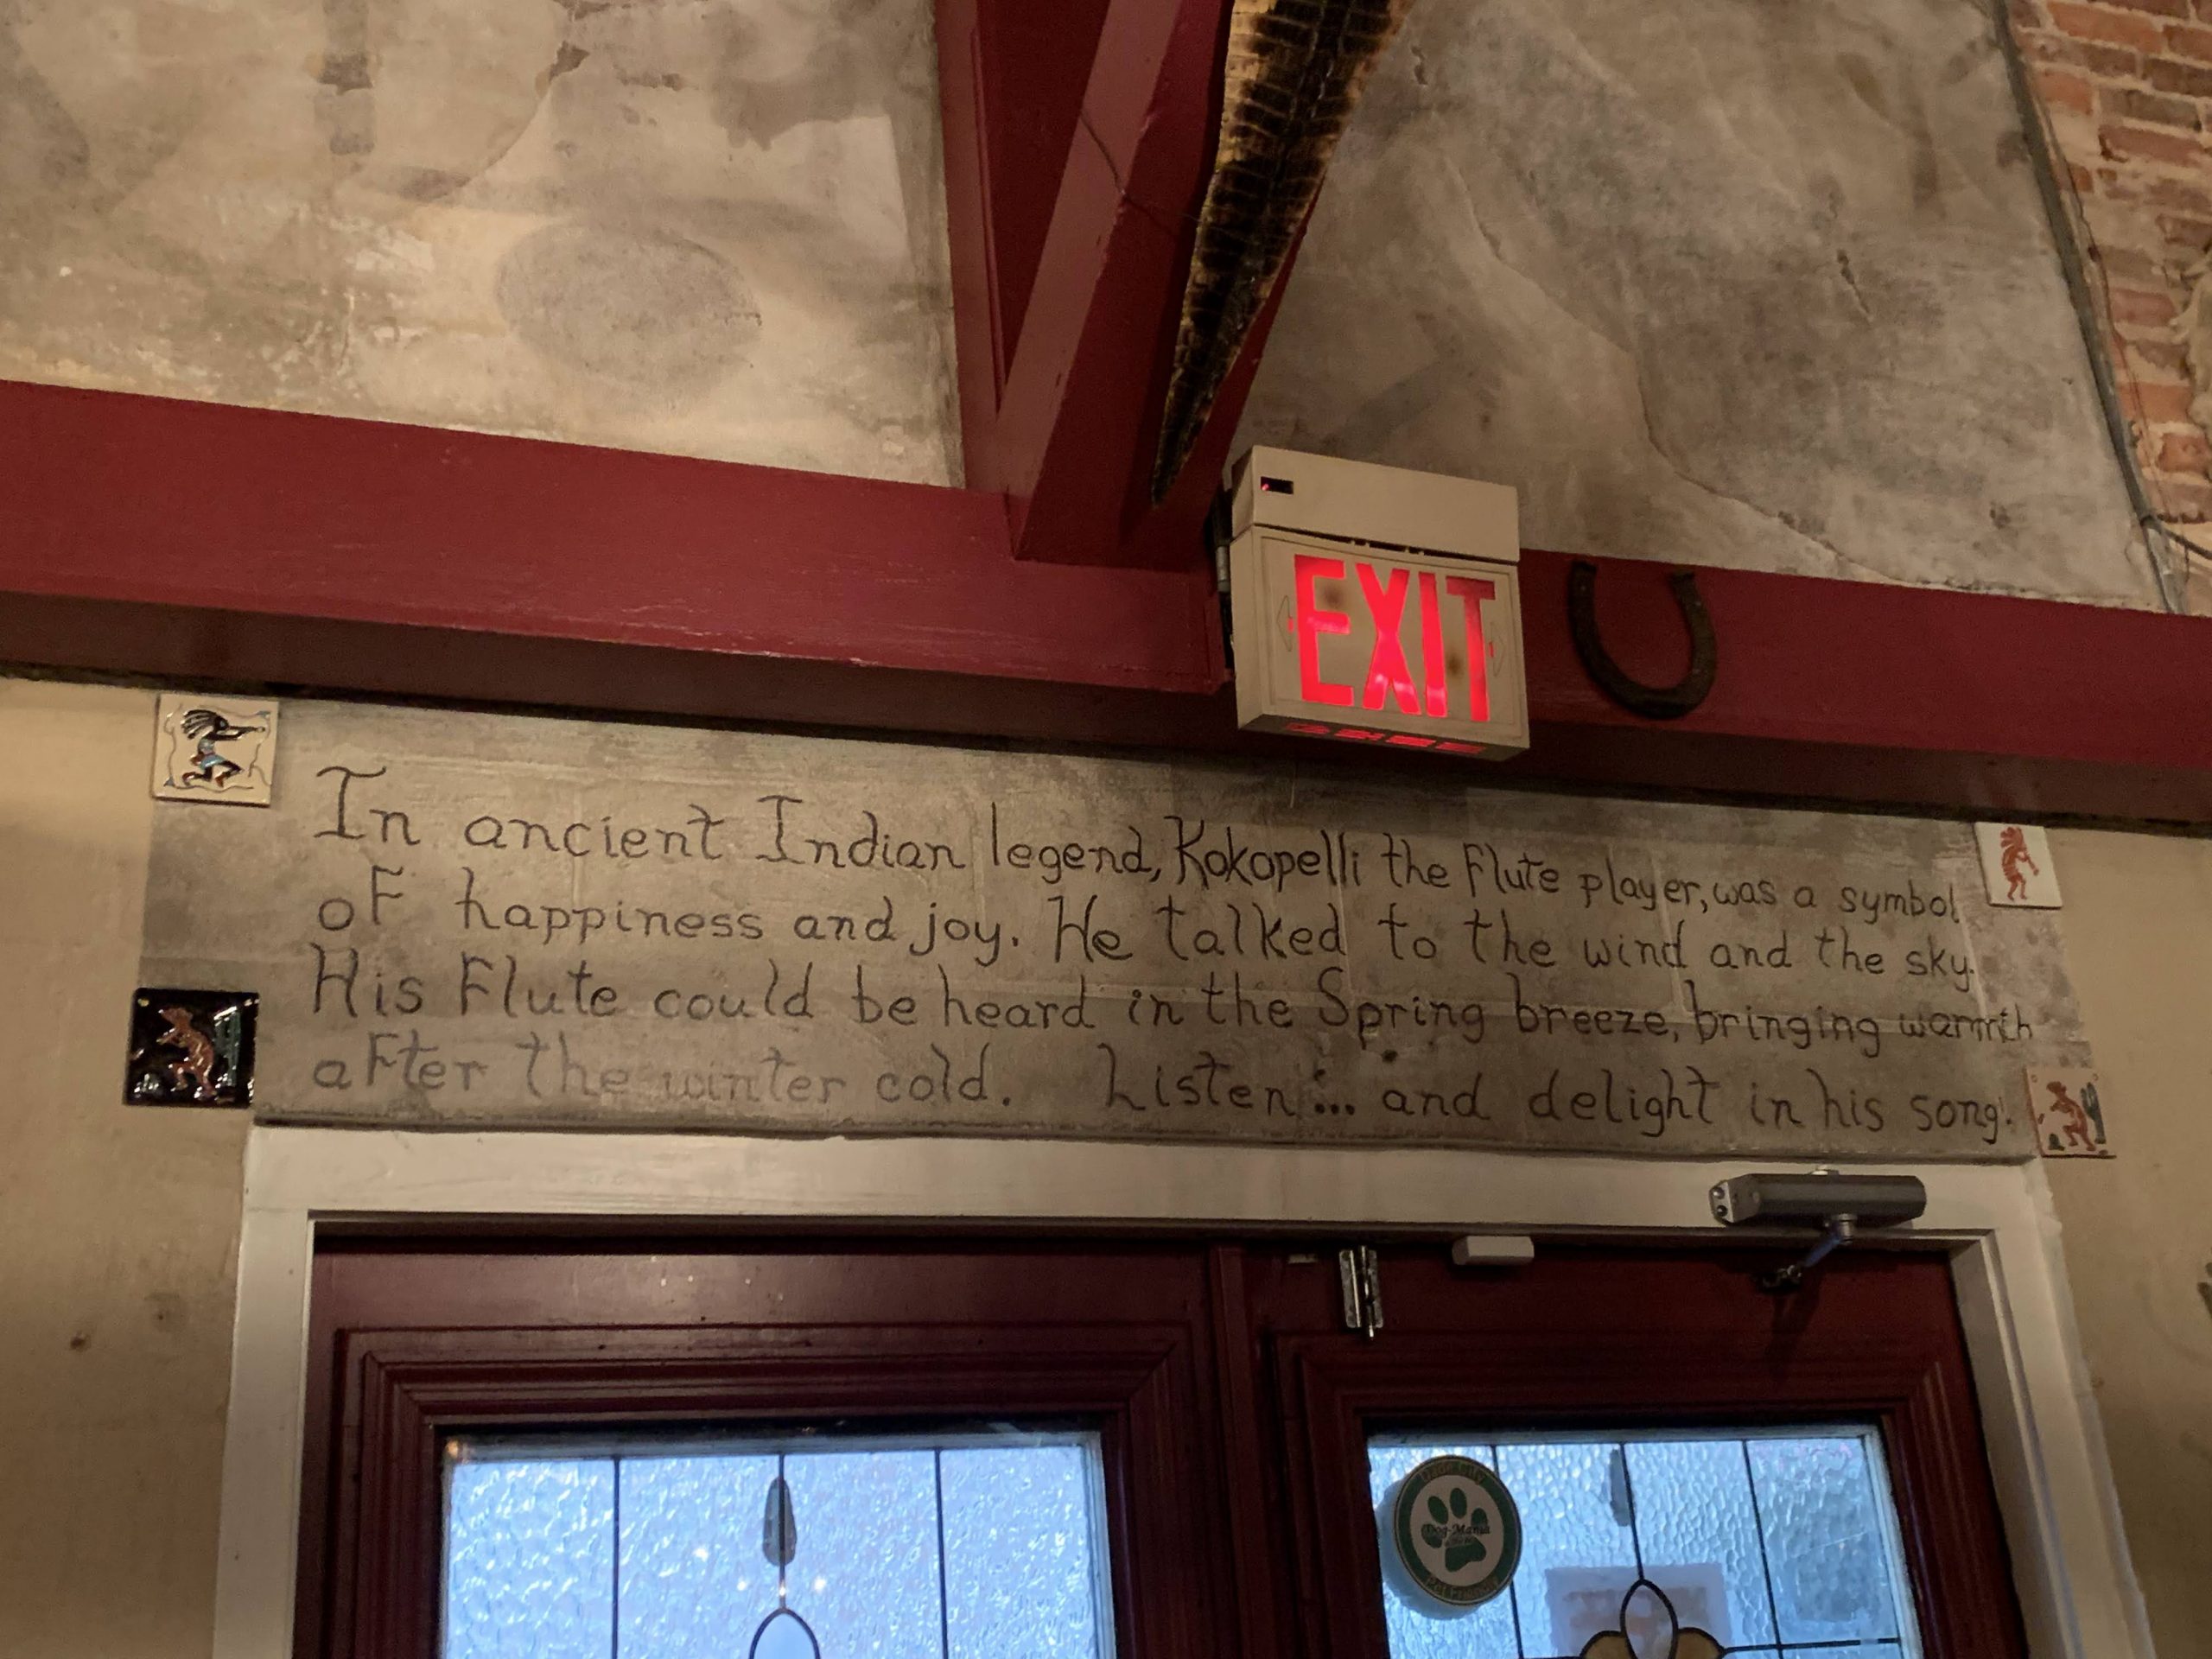 EXIT
In ancient Indian legend, Kokopelli the Flute player, was a symbol
oF happiness and joy. He talked to the wind and the sky.
His Flute could be heard in the Spring breeze, bringing warmth
aFter the winter cold. Listen... and delight in his song.
Dog-Mania